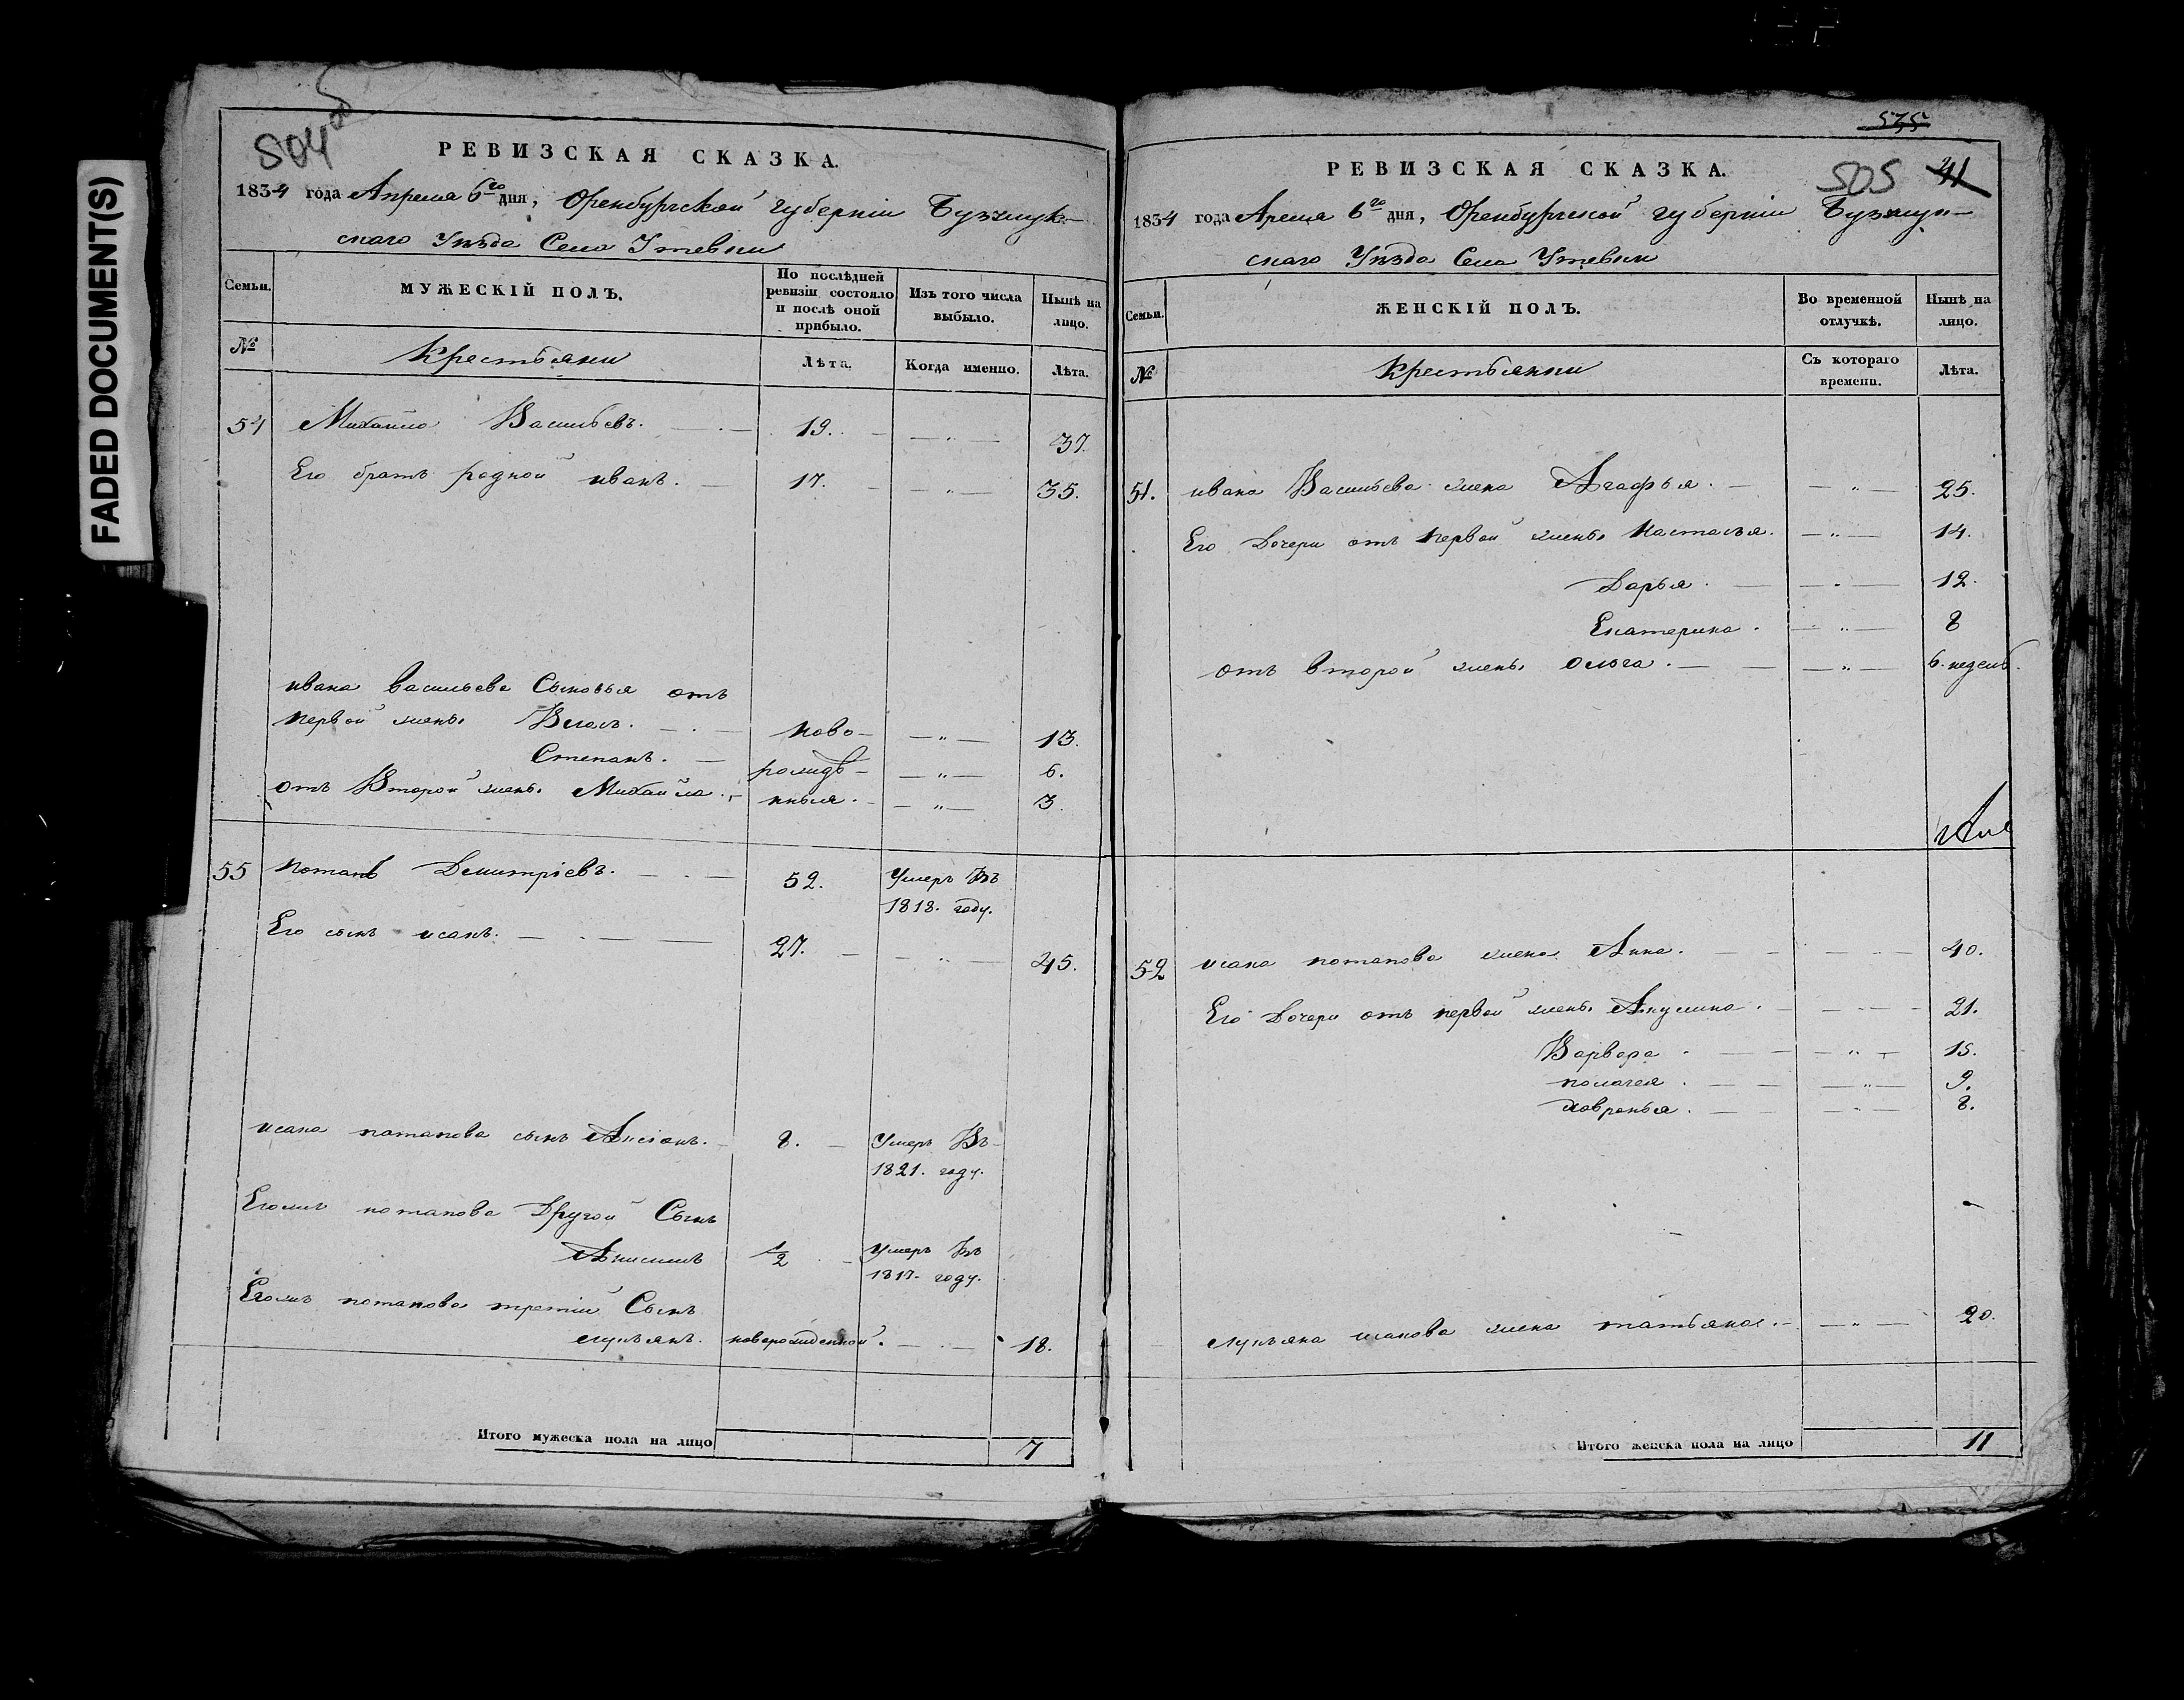 FADED DOCUMENT(S)
504 об
РЕВИЗСКАЯ СКАЗКА.
1834 года Апреля 6го дня, Оренбургской губернiи Бузулук-
скаго Уѣзда Села Утевки
Семьи.
МУЖЕСКIЙ ПОЛЪ.
По послѣдней ревизiи состояло и послѣ оной прибыло.
Изъ того числа выбыло.
Нынѣ на лицо.
№
Крестьяни
Лѣта.
Когда именно.
Лѣта.
54 Михайло Васильевъ. 19. — „ — 37.
Его братъ родной иванъ. 17. — „ — 35.
ивана васильева Сыновья отъ
первой жены Власъ. ново- — „ — 13.
Степанъ. рожде- — „ — 6.
отъ Второй жены Михайла. нныя. — „ — 3.
55 потапъ Демитрiевъ. 52. Умеръ Въ
1818. году.
Его сынъ исакъ. 27. — „ — 45.
исака потапова сынъ 8. Умеръ Въ
1821. году.
Егожъ потапова Другой Сынъ
Анисимъ 1/2 Умеръ Въ
1817. году.
Егожъ потапова третiй Сынъ
лукъянъ. новорожденной. 18.
Итого мужеска пола на лицо 7
535
505 41
РЕВИЗСКАЯ СКАЗКА.
1834 года Апреля 6го дня, Оренбургской губернiи Бузулук-
скаго Уѣзда Села Утевки
Семьи.
ЖЕНСКIЙ ПОЛЪ.
Во временной отлучкѣ.
Нынѣ на лицо.
№
Крестьянки
Съ котораго времени.
Лѣта.
51. ивана Васильева жена Агафья. — „ — 25.
Его Дочери отъ первой жены Настасья. — „ — 14.
Дарья. — „ — 12.
Екатерина. — „ — 8
отъ второй жены олга. — „ — 6. недель.
52 исака потапова жена Анна. — „ — 40.
Его Дочери отъ первой жены Акулина. — „ — 21.
Варвара. — „ — 15.
полагея. — „ — 9.
ховронья. — „ — 8.
лукъяна исакова жена татьяна. — „ — 20.
Итого женска пола на лицо 11